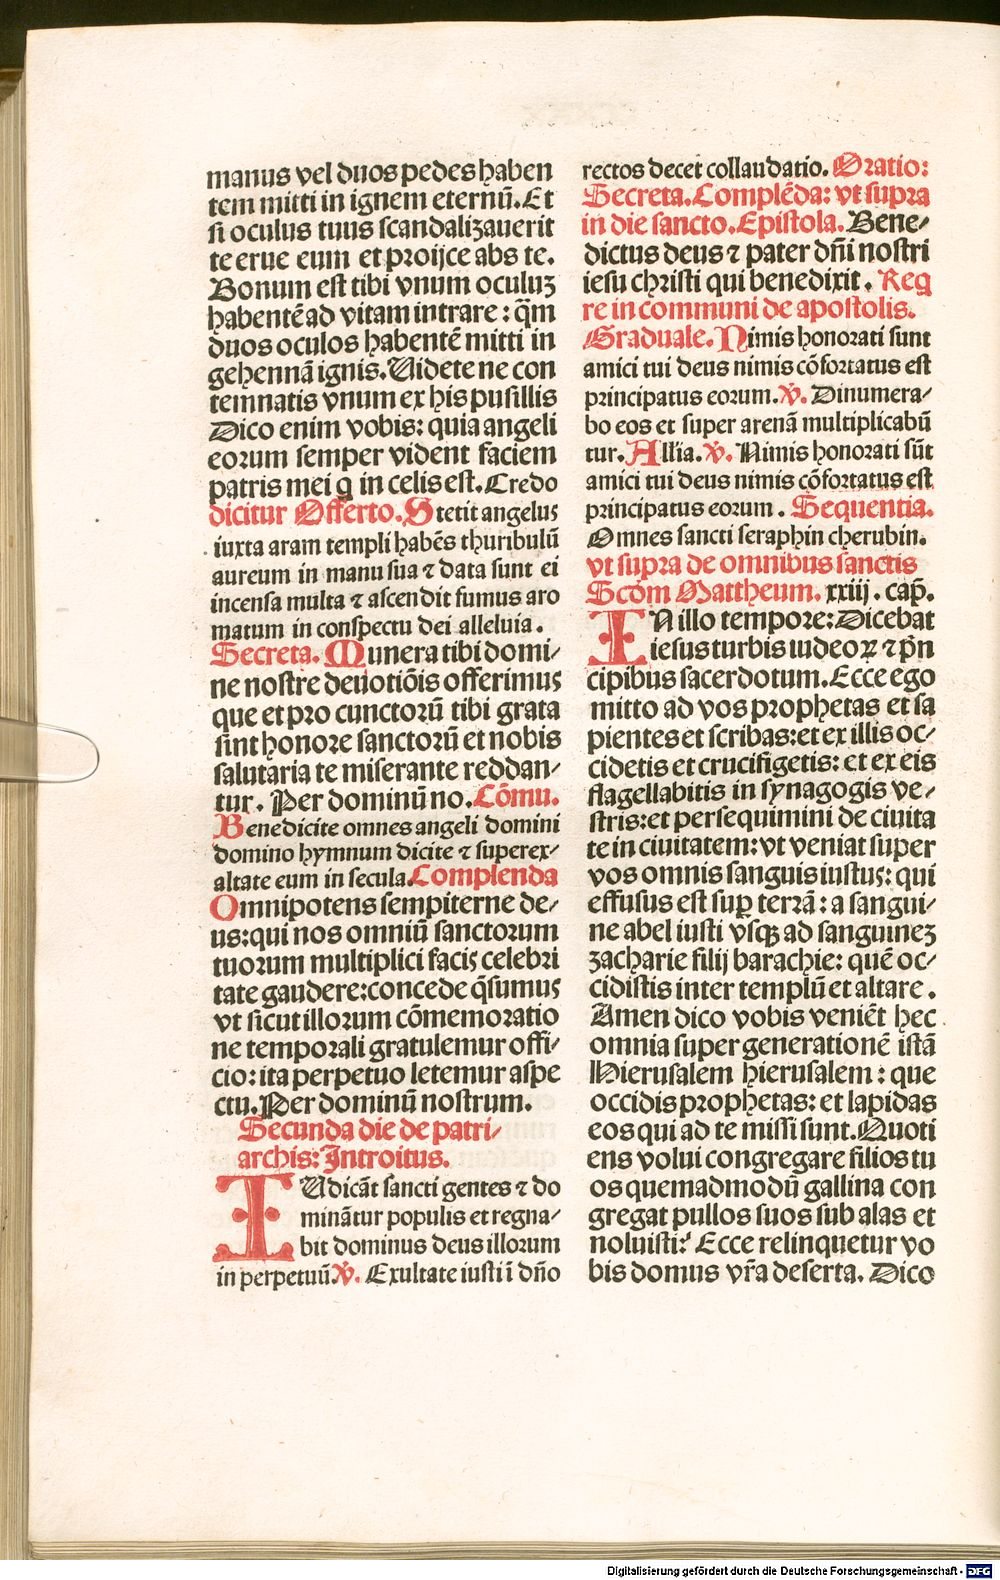 manus vel duos pedes haben
tem mitti in ignem eternū. Et
si oculus tuus scandalizauerit
te erue eum et proijce abs te.
Bonum est tibi vnum oculuz
habentē ad vitam intrare : q̄m
duos oculos habentē mitti in
gehennā ignis. Uidete ne con
temnatis vnum ex his pusillis
Dico enim vobis: quia angeli
eorum semper vident faciem
patris mei q̇ in celis est. Credo
dicitur Offerto. Stetit angelus
iuxta aram templi habēs thuribulū
aureum in manu sua ⁊ data sunt ei
incensa multa ⁊ ascendit fumus aro
matum in conspectu dei alleluia.
Secreta. Munera tibi domi/
ne nostre deuotiōis offerimus
que et pro cunctorū tibi grata
sint honore sanctorū et nobis
salutaria te miserante reddan/
tur. Per dominū no. Cōmu.
Benedicite omnes angeli domini
domino hymnum dicite ⁊ superex/
altate eum in secula. Complenda
Omnipotens sempiterne de/
us: qui nos omniū sanctorum
tuorum multiplici facis celebri
tate gaudere: concede q̄sumus
vt sicut illorum cōmemoratio
ne temporali gratulemur offi/
cio: ita perpetuo letemur aspe
ctu. Per dominū nostrum.
Secunda die de patri/
archis: Introitus.
IUdicāt sancti gentes ⁊ do
minātur populis et regna/
bit dominus deus illorum
in perpetuū. ℣. Exultate iusti ī dn̄o
rectos decet collaudatio. Oratio:
Secreta. Complēda: vt supra
in die sancto. Epistola. Bene/
dictus deus ⁊ pater dn̄i nostri
iesu christi qui benedixit. Req
re in communi de apostolis.
Graduale. Nimis honorati sunt
amici tui deus nimis cōfortatus est
principatus eorum. ℣. Dinumera/
bo eos et super arenā multiplicabū
tur. Allīa. ℣. Nimis honorati sūt
amici tui deus nimis cōfortatus est
principatus eorum. Sequentia.
Omnes sancti seraphin cherubin.
vt supra de omnibus sanctis
Scd̄m Mattheum. xxiij. cap̄.
IN illo tempore: Dicebat
iesus turbis iudeoꝝ ⁊ pn̄
cipibus sacerdotum. Ecce ego
mitto ad vos prophetas et sa
pientes et scribas: et ex illis oc/
cidetis et crucifigetis: et ex eis
flagellabitis in synagogis ve/
stris: et persequimini de ciuita
te in ciuitatem: vt veniat super
vos omnis sanguis iustus: qui
effusus est suꝑ terrā: a sangui/
ne abel iusti vsqꝫ ad sanguinez
zacharie filij barachie: quē oc/
cidistis inter templū et altare.
Amen dico vobis veniēt hec
omnia super generationē istā
Hierusalem hierusalem: que
occidis prophetas: et lapidas
eos qui ad te missi sunt. Quoti
ens volui congregare filios tu
os quemadmodū gallina con
gregat pullos suos sub alas et
noluisti? Ecce relinquetur vo
bis domus vr̄a deserta. Dico
Digitalisierung gefördert durch die Deutsche Forschungsgemeinschaft - DFG